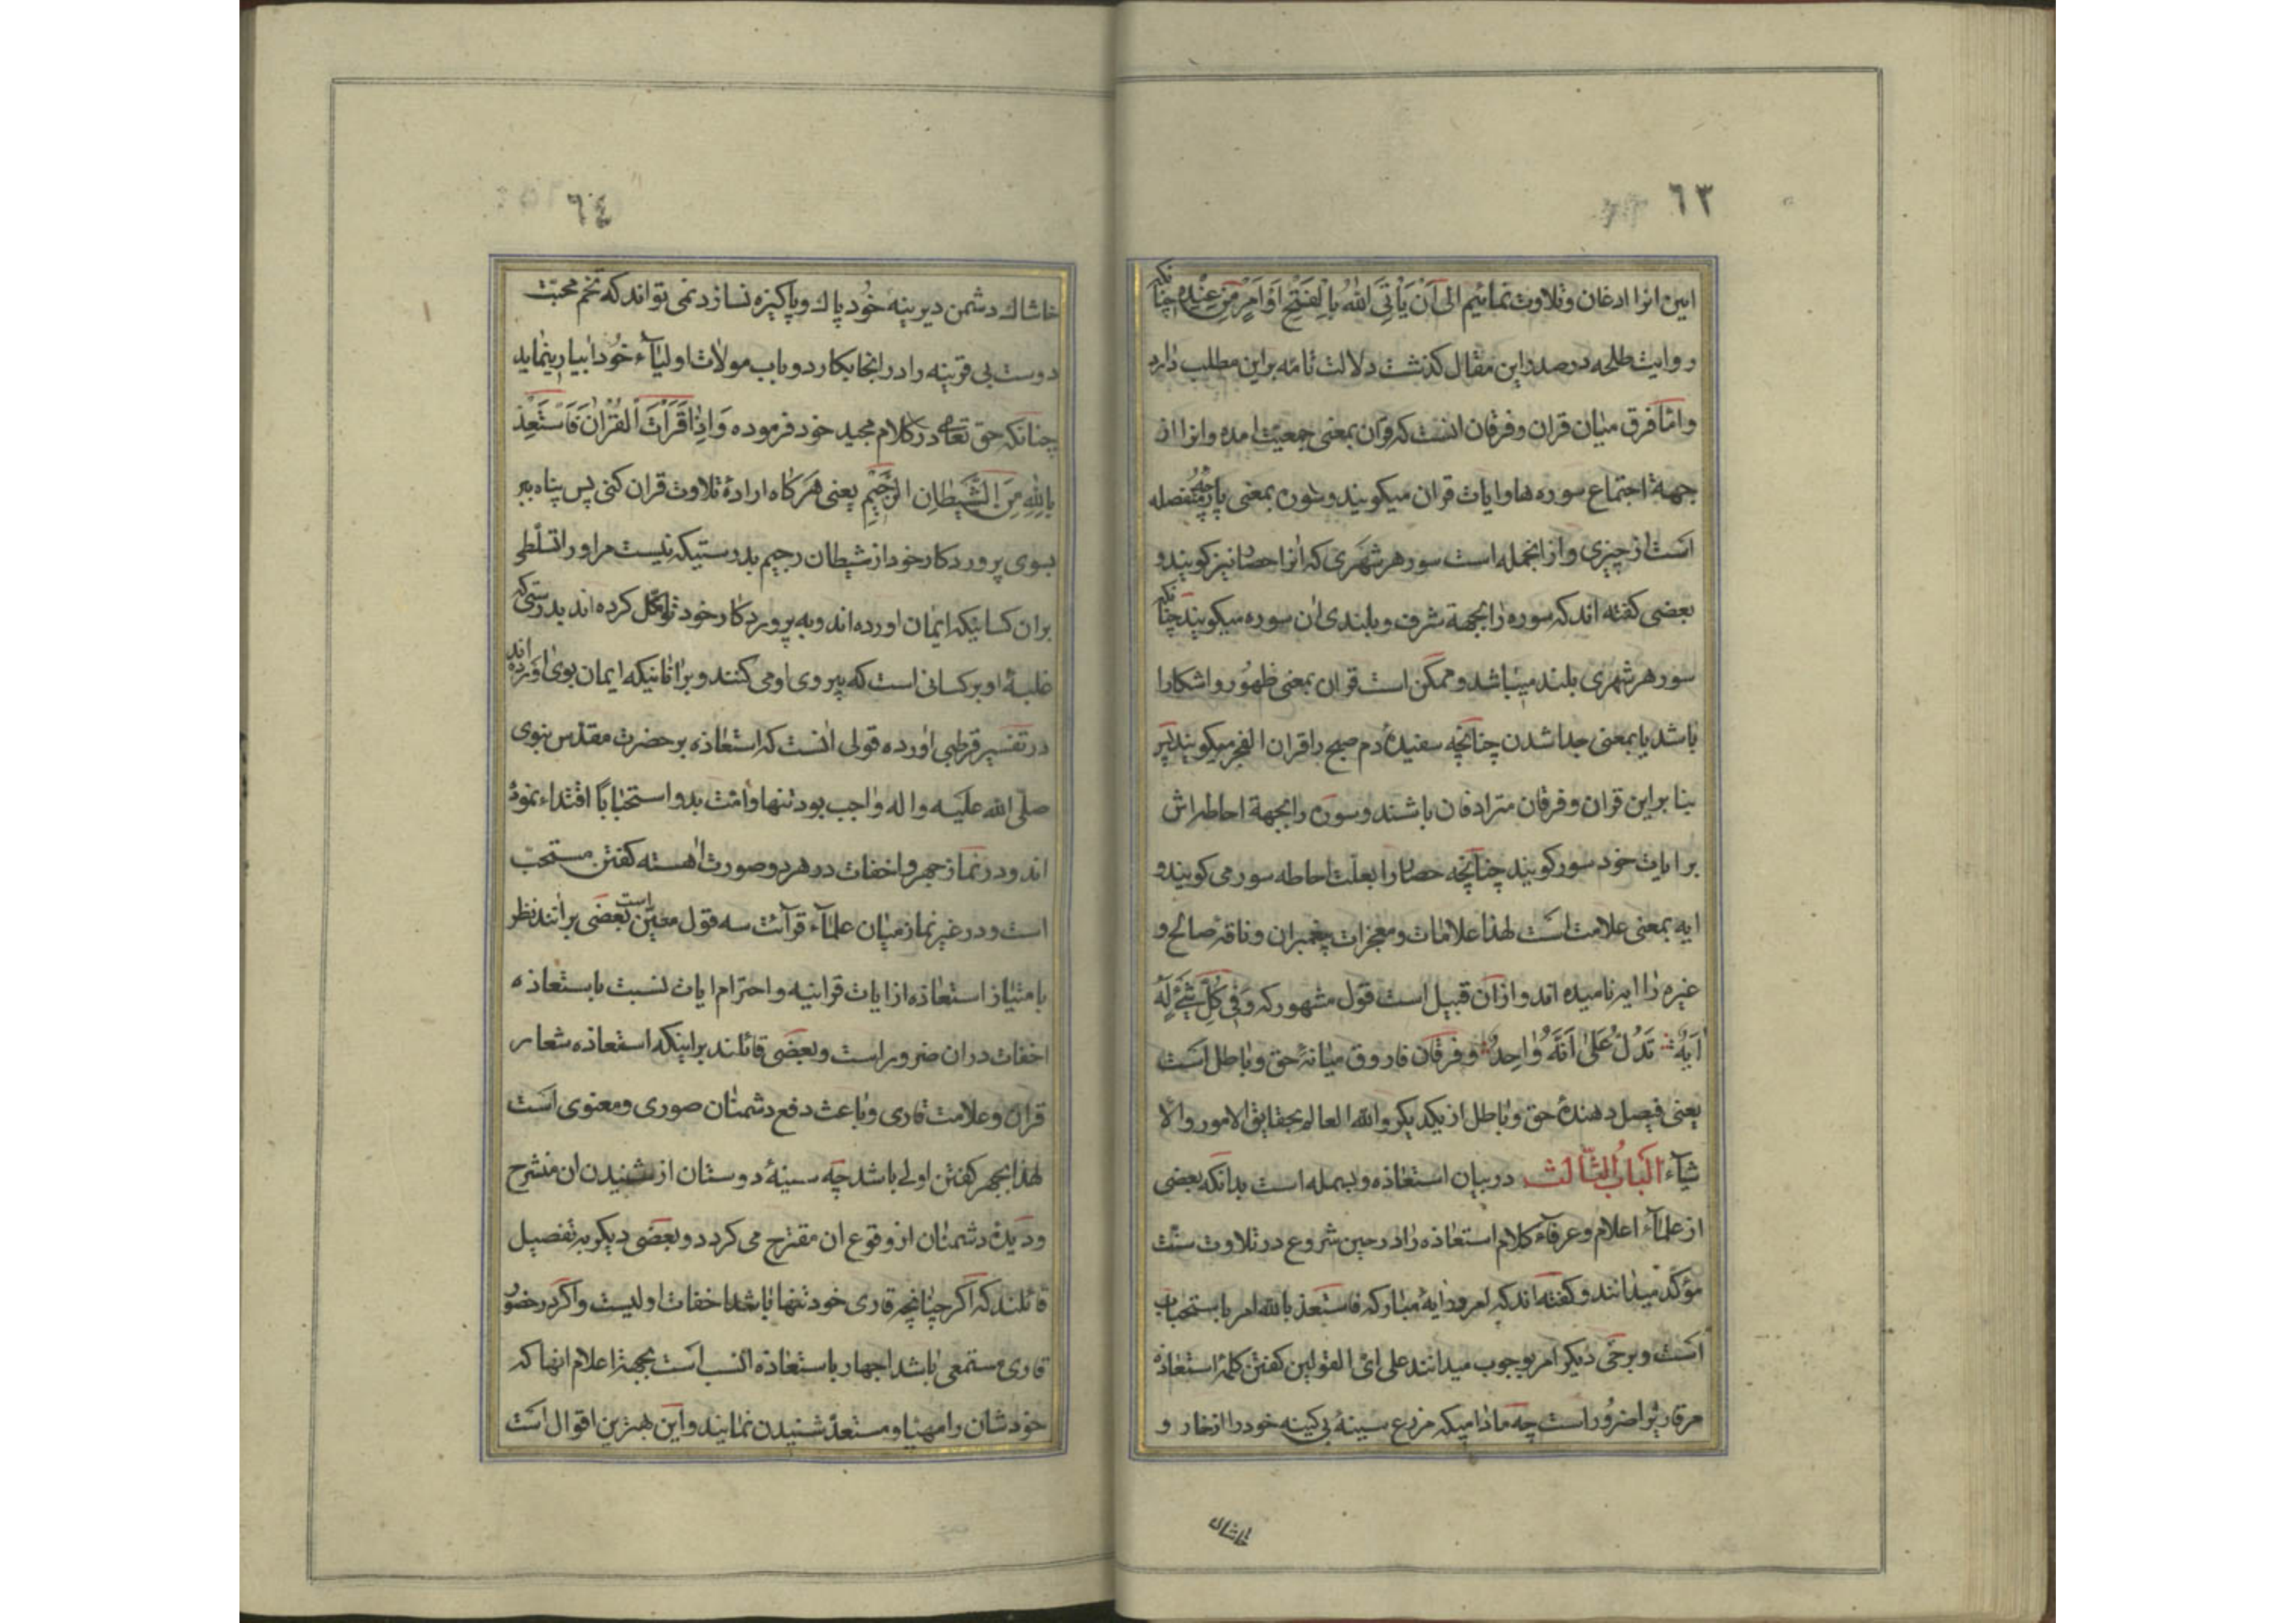 ٦٣
این انرا ادغان و تلاوت نمائیم الی اَنْ یَأتِیَ اللهُ بِالْفَتْحِ اَوْ اَمْرٍ مِنْ عِنْدِهِ چنانکه
روایت طلحه در صدر این مقال کذشت دلالت تامّه بر این مطلب دارد
و امّا فرق میان قران و فرقان انست که قرآن بمعنی جمعیّت امده و انرا از
جهة اجتماع سوره ها و ایات قران میکویند و سوره بمعنی پارچهٔ منفصله
است از چیزی و از انجمله است سور هر شهری که انرا حصار نیز کویند و
بعضی کفته اند که سوره را بجهة شرف و بلندی ان سوره میکویند چنانکه
سور هر شهری بلند میباشد و ممکن است قران بمعنی ظهور و اشکارا
باشد یا بمعنی جدا شدن چنانچه سفیدهٔ دم صبح را قران الفجر میکویند پس
بنا بر این قران و فرقان مترادفان باشند و سوره را بجهة احاطه اش
بر ایات خود سور کویند چنانچه حصار را بعلّت احاطه سور می کویند و
ایه بمعنی علامت است لهذا علامات و معجزات پیغمبران و ناقهٔ صالح و
غیره را ایه نامیده اند و از ان قبیل است قول مشهور که وَفِی کُلِّ شَیْءٍ لَهُ
آیَةٌ تَدُلُّ عَلیٰ اَنَّهُ وٰاحِدٌ و فرقان فاروق میانهٔ حق و باطل است
یعنی فیصل دهندهٔ حق و باطل از یکدیکر والله العالم بحقایق الامور والا
شیآء اَلْبابُ الثّالث در بیان استعاذه و بسمله است بدانکه بعضی
از علمآء اعلام و عرفآء کلام استعاذه را در حین شروع در تلاوت سنّت
مؤکّد میدانند و کفته اند که امر در ایهٔ مبارکه فاستعذ بالله امر باستحباب
است و برخی دیکر امر بوجوب میدانند علی ایّ القولین کفتن کلمهٔ استعاذه
مر قاری را ضرور است چه مادامیکه مزرع سینهٔ بی کینه خود را از خار و
خاشاک
٦٤
خاشاک دشمن دیرینه خود پاک و پاکیزه نسازد نمی تواند که تخم محبّت
دوست بی قرینه را در انجا بکارد و باب مولات اولیآء خود ابیاری نماید
چنانکه حق تعالی در کلام مجید خود فرموده وَاِذٰا قَرَأتَ الْقُرْانَ فَاسْتَعِذْ
بِاللهِ مِنَ الشَّیطانِ الرَّجیمِ یعنی هرکاه ارادهٔ تلاوت قران کنی پس پناه ببر
بسوی پروردکار خود از شیطان رجیم بدرستیکه نیست مر او را تسلّطی
بر ان کسانیکه ایمان اورده اند و به پروردکار خود توکّل کرده اند بدرستی که
غلبهٔ او بر کسانی است که پیروی او می کنند و بر انانیکه ایمان بوی اورده اند
در تفسیر قرطبی اورده قولی انست که استعاذه بر حضرت مقدّس نبوی
صلّی الله علیه و اله واجب بود تنها و امّت بدو استحباباً اقتداء نموده
اند و در نماز جهر و اخفات در هر دو صورت اهسته کفتن مستحبّ
است و در غیر نماز میان علمآء قرآئت سه قول معیّن است بعضی برانند نظر
بامتیاز استعاذه از ایات قرانیه و احترام ایات نسبت باستعاذه
اخفات در ان ضرور است و بعضی قائلند بر اینکه استعاذه شعار
قران و علامت قاری و باعث دفع دشمنان صوری و معنوی است
لهذا بجهر کفتن اولی باشد چه سینهٔ دوستان از شنیدن ان منشرح
و دیدهٔ دشمنان از وقوع ان مقترح می کردد و بعضی دیکر به تفصیل
قائلند که اکر چنانچه قاری خود تنها باشد اخفات اولیست و اکر در حضور
قاری مستمعی باشد اجهار باستعاذه انسب است بجهة اعلام انها که
خودشان را مهیّا و مستعدّ شنیدن نمایند و این بهترین اقوال است